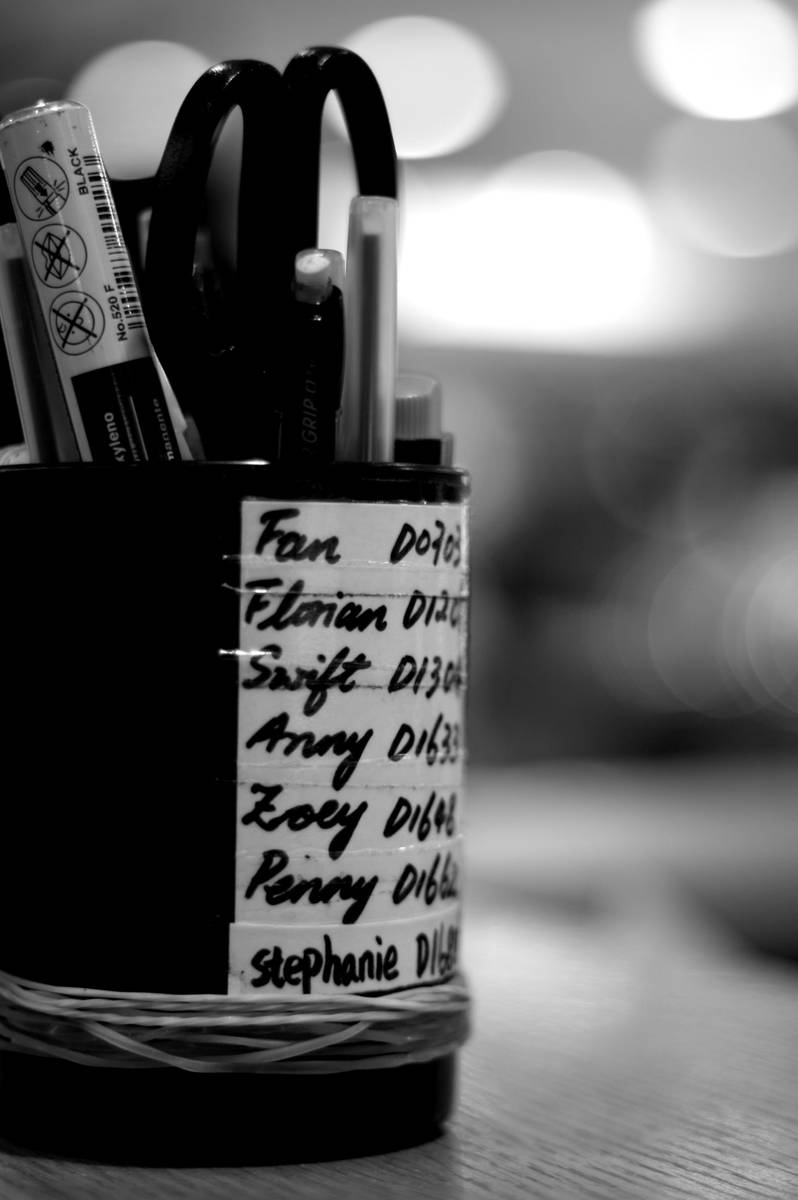 BLACK
No.520 F
GRIP
Fan D0703
Florian D120
Swift D1304
Anny D1633
Zoey D1648
Penny D1662
stephanie D168